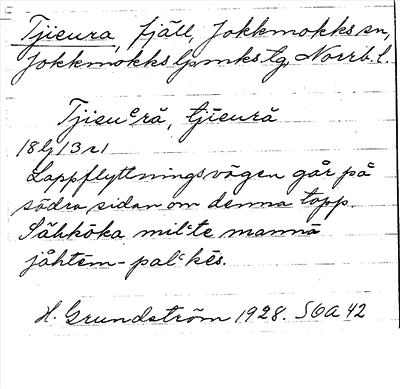 Tjieura, fjäll, Jokkmokks sn,
Jokkmokks lpmks tg, Norrb. l.
Tjieuᶜrā, tjīeurā
18 lj 13 r1
Lappflyttningsvägen går på
södra sidan om denna topp.
Sähkōka milᶜte mannā
jåhtem-palᶜkēs.
H. Grundström 1928. SOA 42